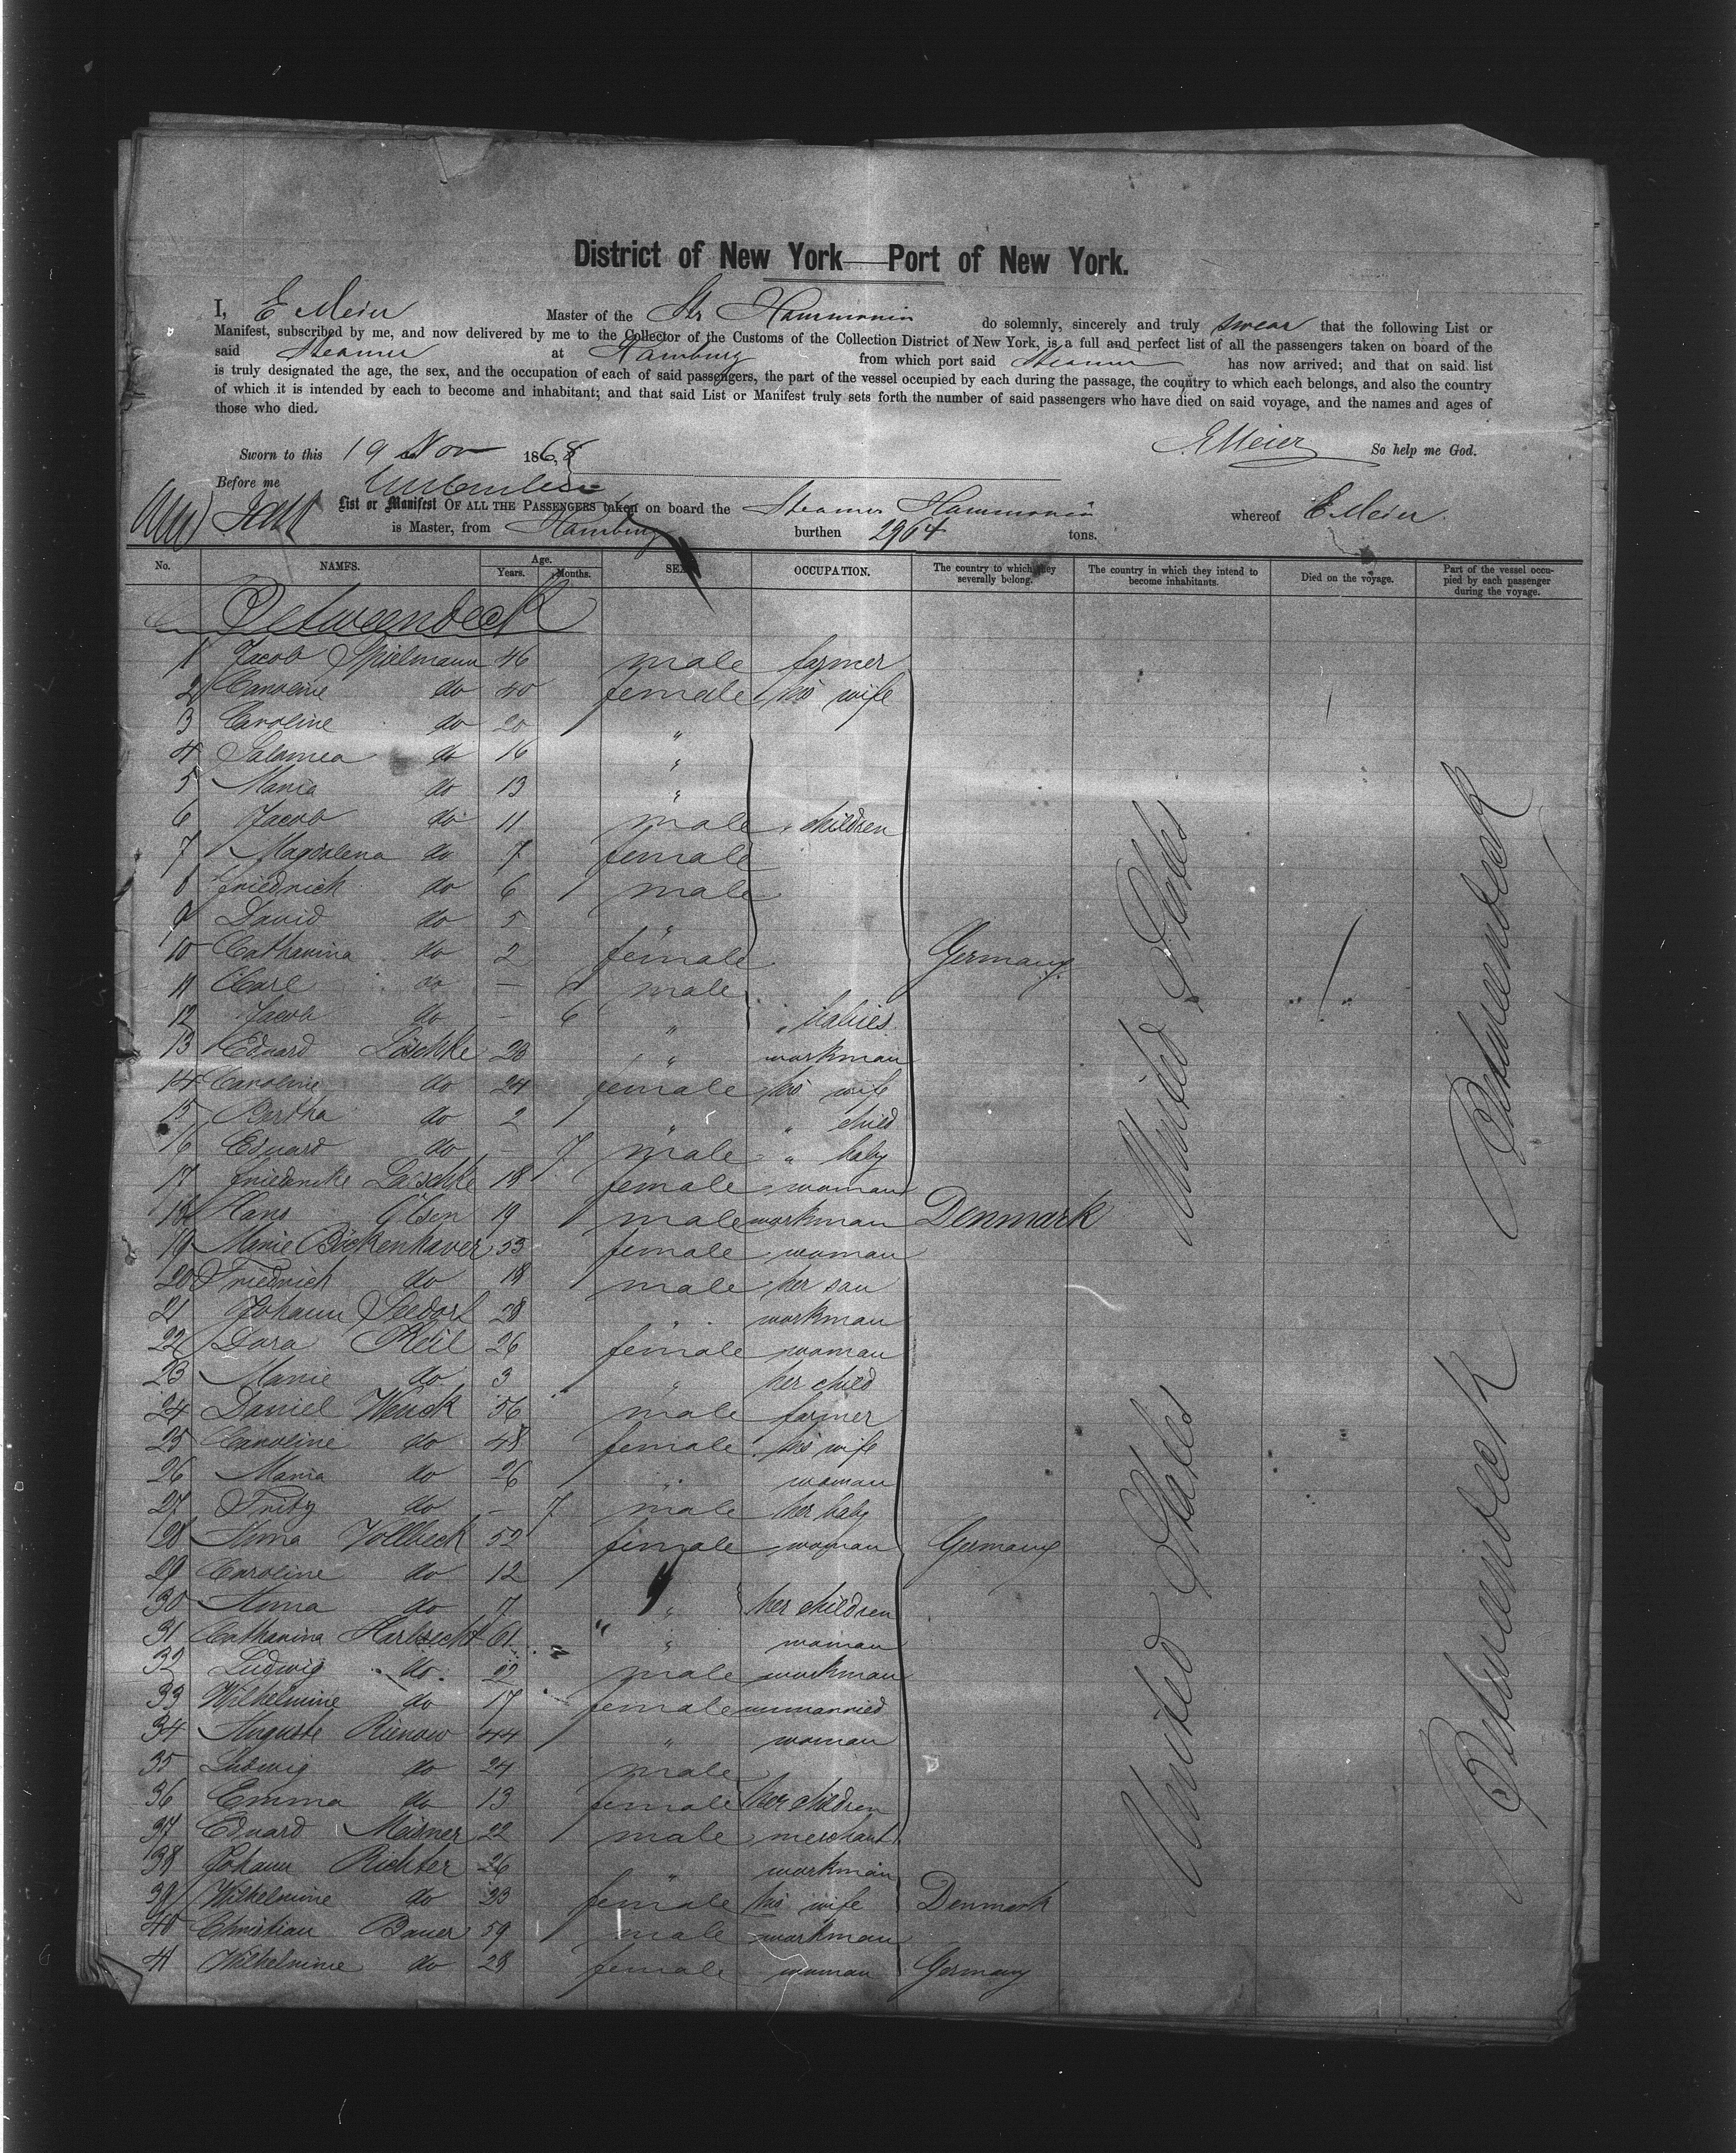 District of New York—Port of New York.
I, E Meier Master of the Str Hammonia do solemnly, sincerely and truly swear that the following List or
Manifest, subscribed by me, and now delivered by me to the Collector of the Customs of the Collection District of New York, is a full and perfect list of all the passengers taken on board of the
said Steamer at Hamburg from which port said Steamer has now arrived; and that on said list
is truly designated the age, the sex, and the occupation of each of said passengers, the part of the vessel occupied by each during the passage, the country to which each belongs, and also the country
of which it is intended by each to become and inhabitant; and that said List or Manifest truly sets forth the number of said passengers who have died on said voyage, and the names and ages of
those who died.
Sworn to this 19 Nov 1868 EMeier So help me God.
Before me
List or Manifest OF ALL THE PASSENGERS taken on board the Steamer Hammonia whereof E Meier
is Master, from Hamburg burthen 2964 tons.
No. NAMES. Age. Years. Months. SEX. OCCUPATION. The country to which they severally belong. The country in which they intend to become inhabitants. Died on the voyage. Part of the vessel occupied by each passenger during the voyage.
Betweendeck
1 Jacob Spielmann 46 male farmer
2 Caroline do 40 female his wife
3 Caroline do 20 "
4 Salomea do 16 "
5 Maria do 13 "
6 Jacob do 11 male children
7 Magdalena do 7 female
8 Friedrich do 6 male
9 David do 5 "
10 Catharina do 2 female Germany
11 Carl do — male
12 Jacob do — 6 " babies
13 Eduard Löschke 28 " workman
14 Caroline do 24 female his wife
15 Bertha do 2 " " child
16 Eduard do — 7 male " baby
17 Friedericke Laeschke 18 female woman
18 Hans Olsen 19 male workman Denmark
19 Marie Böckenhaver 53 female woman
20 Friedrich do 18 male her son
21 Johann Seedorf 28 " workman
22 Dora Keil 26 female woman
23 Marie do 3 " her child
24 Daniel Wenck 56 male farmer
25 Caroline do 48 female his wife
26 Maria do 26 " woman
27 Fritz do — 7 male her baby
28 Anna Vollbeck 52 female woman Germany
29 Caroline do 12
30 Anna do 7 " her children
31 Catharina Harbrecht 61 " woman
32 Ludwig do 22 male workman
33 Wilhelmine do 17 female unmarried
34 Auguste Rienow 44 " woman
35 Ludwig do 24 male
36 Emma do 13 female her children
37 Eduard Meisner 22 male merchant
38 Johann Richter 26 " workman
39 Wilhelmine do 23 female his wife Denmark
40 Christian Bauer 59 male workman
41 Wilhelmine do 28 female woman Germany
United States
United States
Betweendeck
Betweendeck